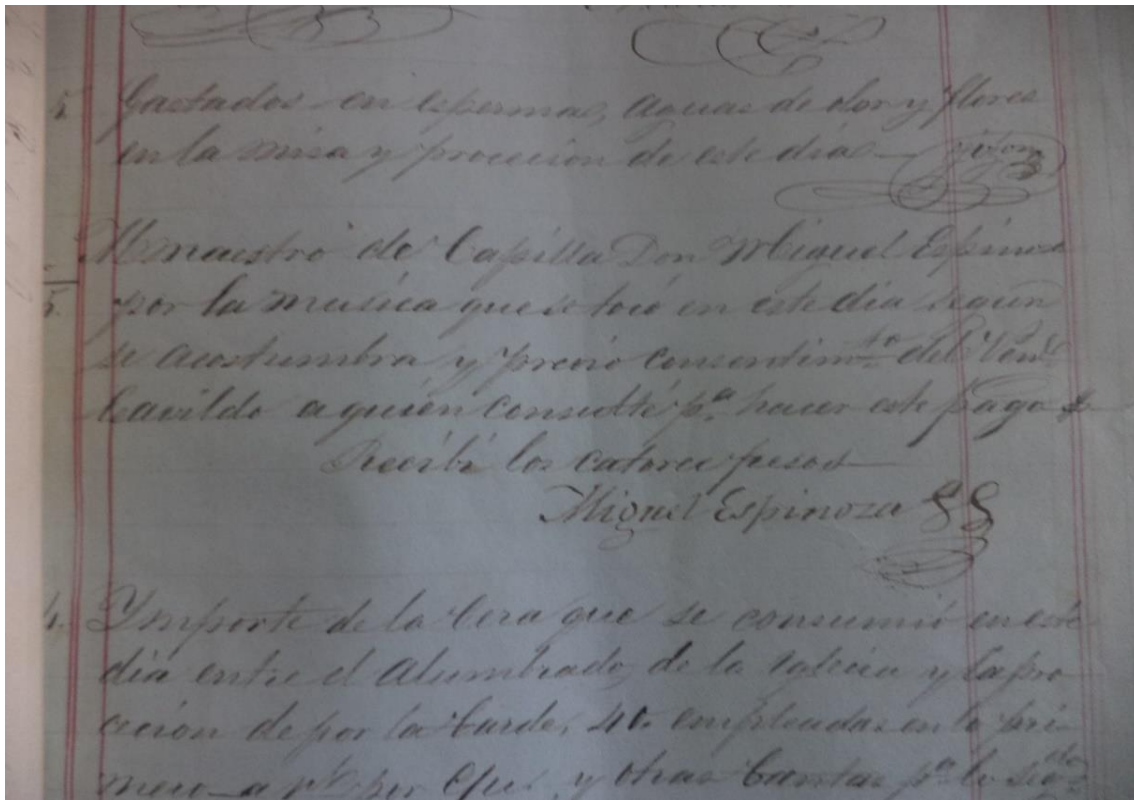 5. Gastados en espermas, aguas de olor y flores
en la misa y procecion de este dia
Al maestro de Capilla Don Miguel Espinoza
5. por la musica que se tocó en este dia segun
se acostumbra y previo consentimto. del Vene
Cavildo a quién consulté pa. hacer este pago
Recibí los catorce pesos
Miguel Espinoza
4. Ymporte de la Cera que se consumió en este
dia entre el alumbrado de la Yglecia y la pro
cecion de por la tarde, 40. empleadas en lo pri-
mero a por y otras tantas pa. lo